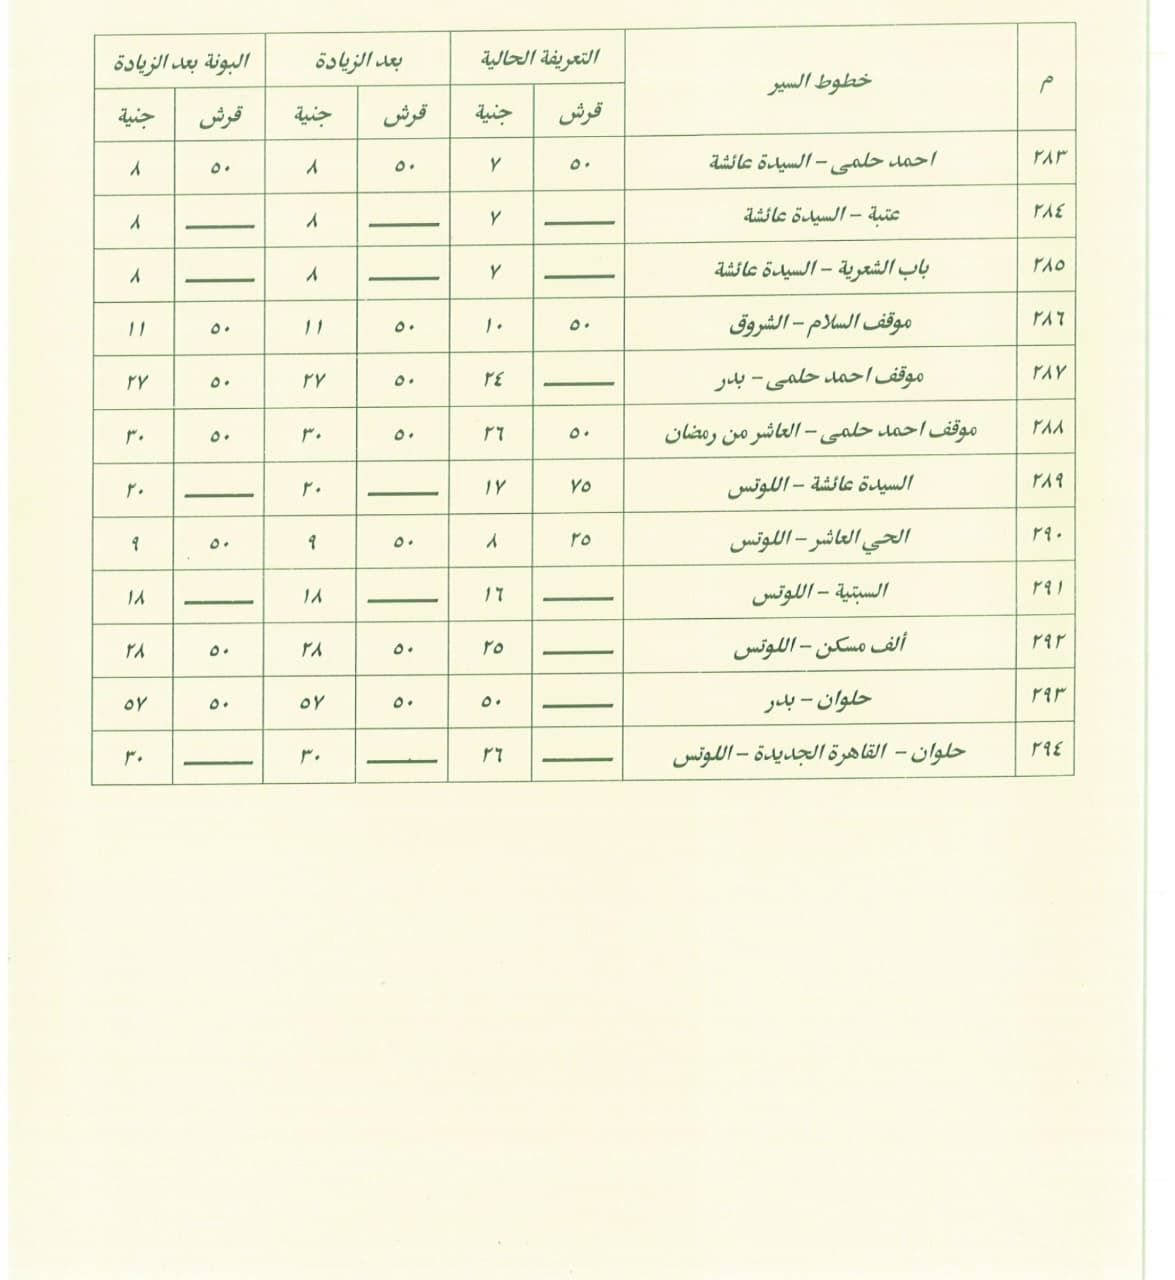 م خطوط السير التعريفة الحالية بعد الزيادة البونة بعد الزيادة
قرش جنية قرش جنية قرش جنية
٢٨٣ احمد حلمى – السيدة عائشة ٥٠ ٧ ٥٠ ٨ ٥٠ ٨
٢٨٤ عتبة – السيدة عائشة ـــــ ٧ ـــــ ٨ ـــــ ٨
٢٨٥ باب الشعرية – السيدة عائشة ـــــ ٧ ـــــ ٨ ـــــ ٨
٢٨٦ موقف السلام – الشروق ٥٠ ١٠ ٥٠ ١١ ٥٠ ١١
٢٨٧ موقف احمد حلمى – بدر ـــــ ٢٤ ٥٠ ٢٧ ٥٠ ٢٧
٢٨٨ موقف احمد حلمى – العاشر من رمضان ٥٠ ٢٦ ٥٠ ٣٠ ٥٠ ٣٠
٢٨٩ السيدة عائشة – اللوتس ٧٥ ١٧ ـــــ ٢٠ ـــــ ٢٠
٢٩٠ الحي العاشر – اللوتس ٢٥ ٨ ٥٠ ٩ ٥٠ ٩
٢٩١ السبتية – اللوتس ـــــ ١٦ ـــــ ١٨ ـــــ ١٨
٢٩٢ ألف مسكن – اللوتس ـــــ ٢٥ ٥٠ ٢٨ ٥٠ ٢٨
٢٩٣ حلوان – بدر ـــــ ٥٠ ٥٠ ٥٧ ٥٠ ٥٧
٢٩٤ حلوان – القاهرة الجديدة – اللوتس ـــــ ٢٦ ـــــ ٣٠ ـــــ ٣٠